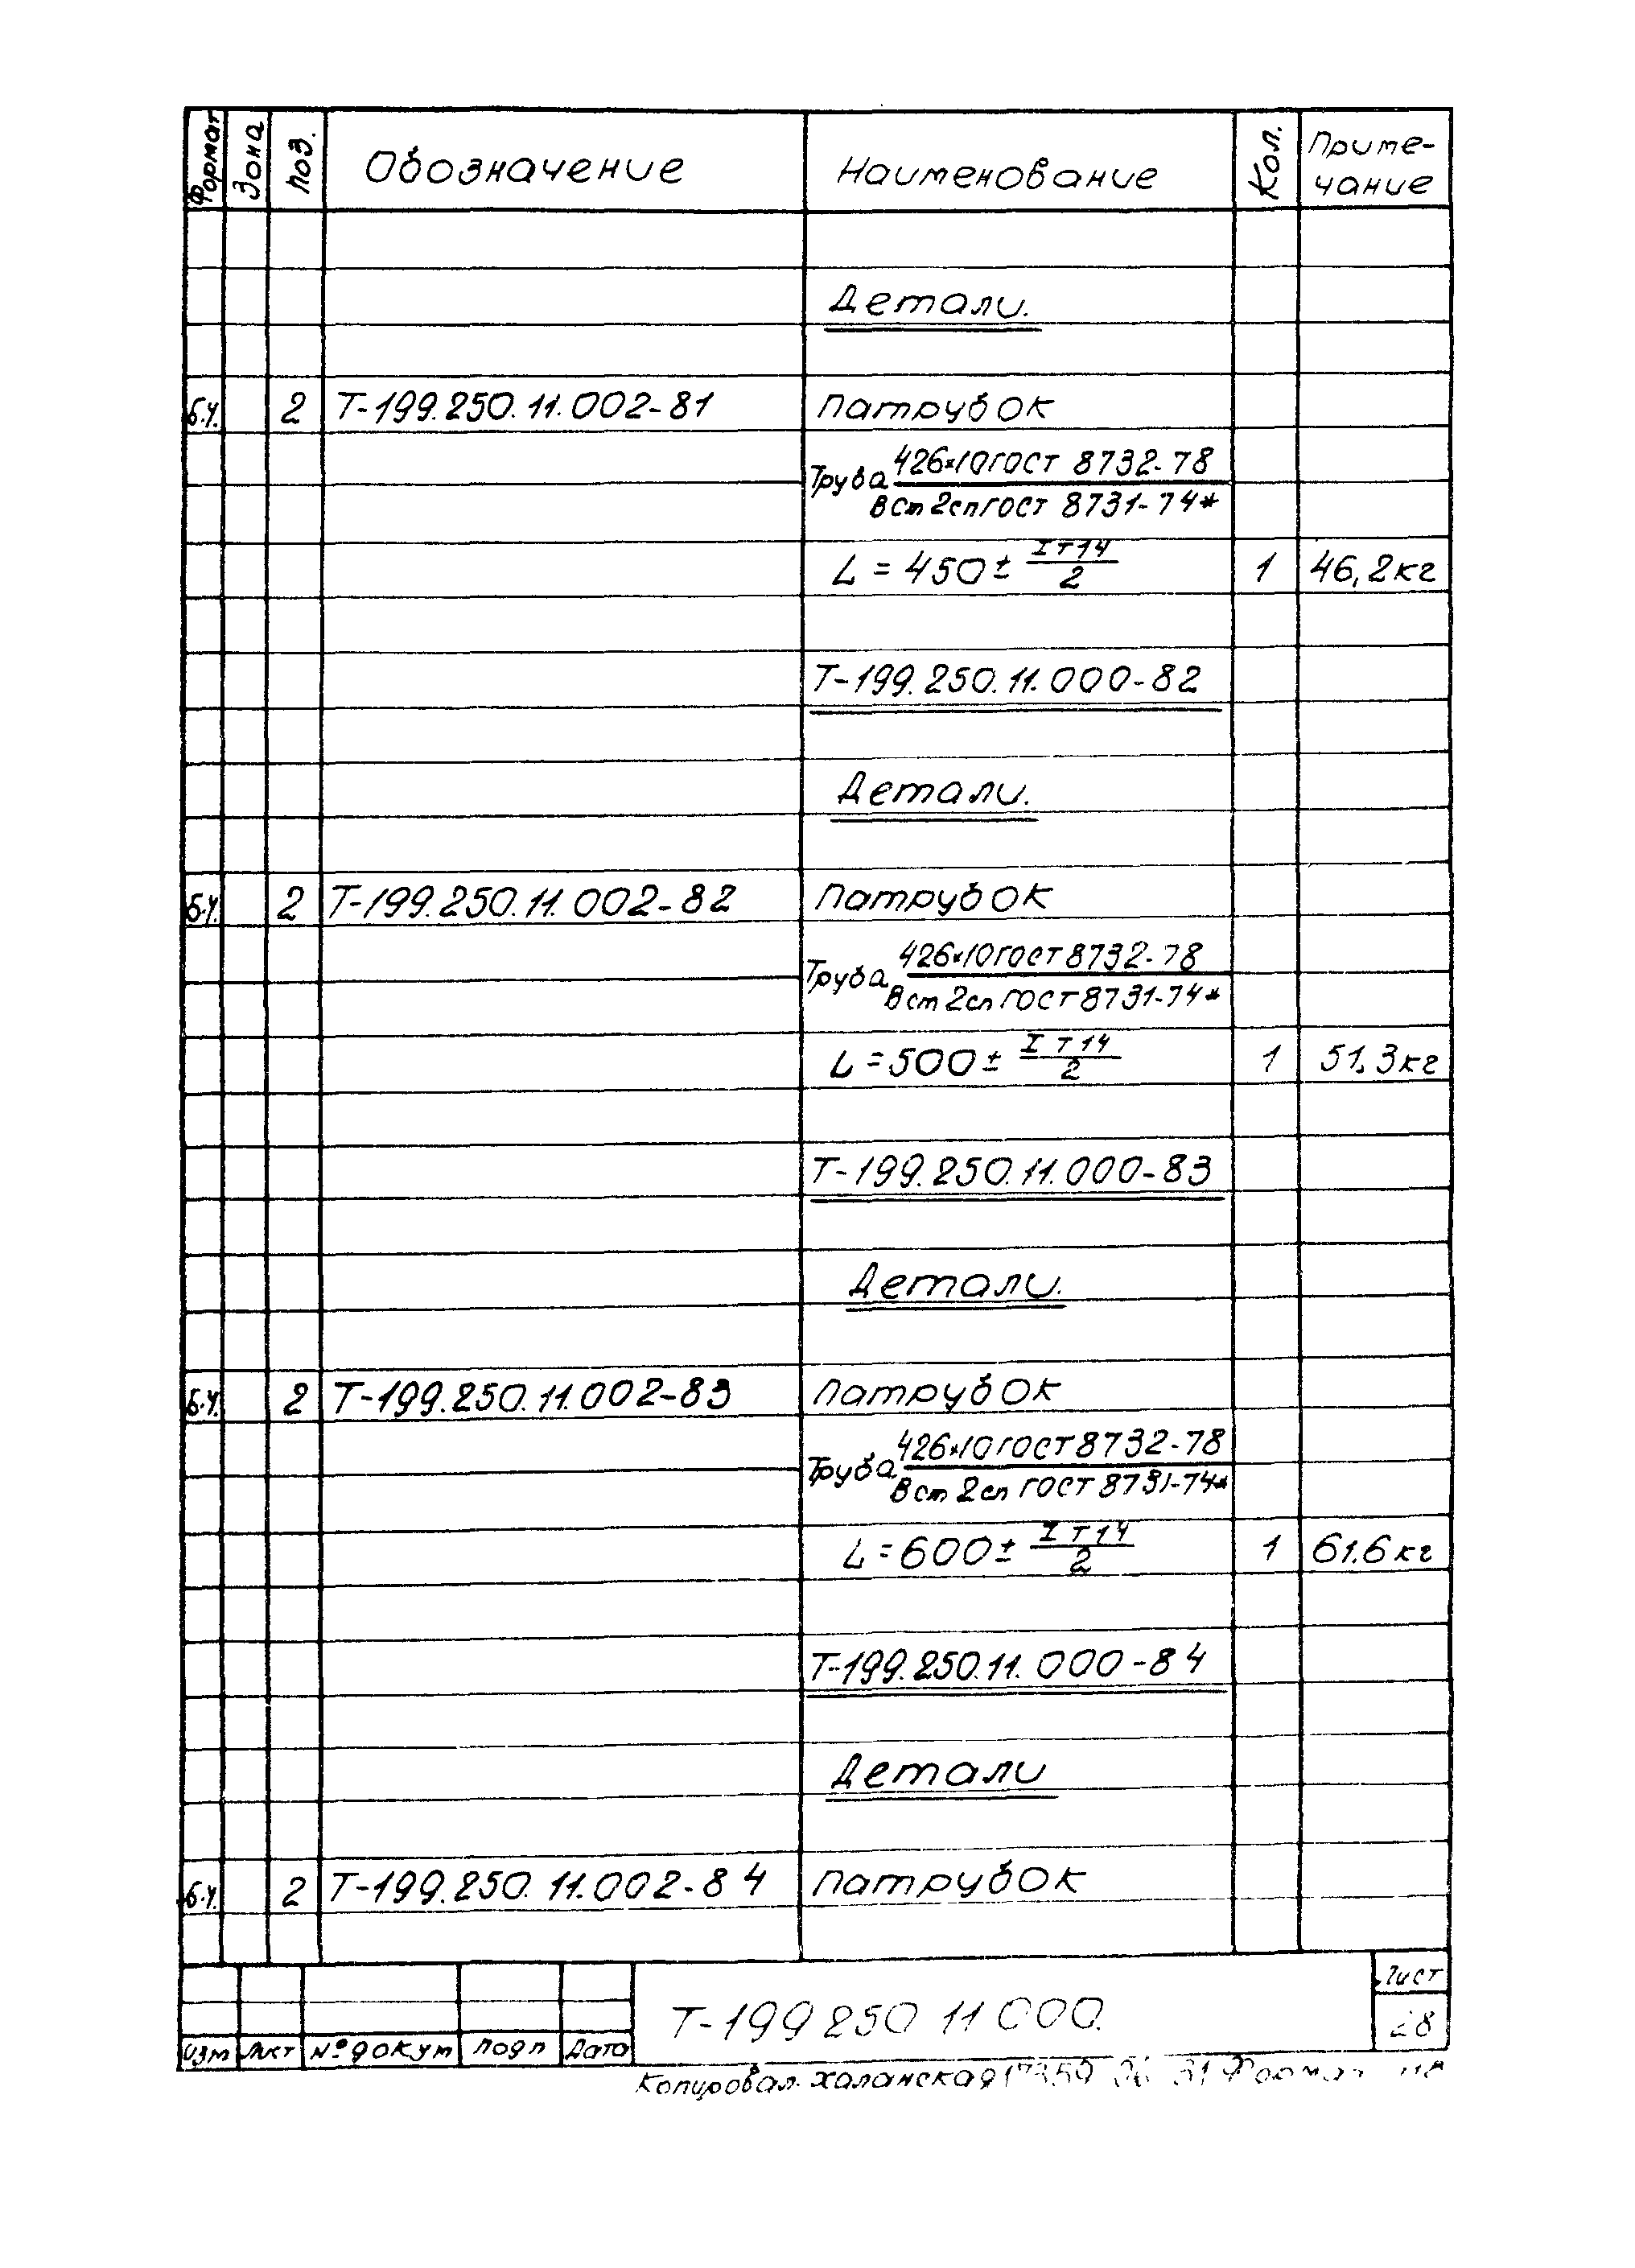 Формат Зона Поз. Обозначение Наименование Кол. Приме-
чание
Детали.
Б.Ч. 2 Т-199.250.11.002-81 Патрубок
Труба 426×10 ГОСТ 8732-78
В Ст 2сп ГОСТ 8731-74*
L = 450 ± IT14/2 1 46,2кг
Т-199.250.11.000-82
Детали.
Б.Ч. 2 Т-199.250.11.002-82 Патрубок
Труба 426×10 ГОСТ 8732-78
В Ст 2сп ГОСТ 8731-74*
L = 500 ± IT14/2 1 51,3кг
Т-199.250.11.000-83
Детали.
Б.Ч. 2 Т-199.250.11.002-83 Патрубок
Труба 426×10 ГОСТ 8732-78
В Ст 2сп ГОСТ 8731-74*
L = 600 ± IT14/2 1 61.6кг
Т-199.250.11.000-84
Детали
Б.Ч. 2 Т-199.250.11.002-84 Патрубок
Т-199 250 11 000.
Лист
28
Изм Лист № докум Подп Дата
Копировал. Халанская Формат